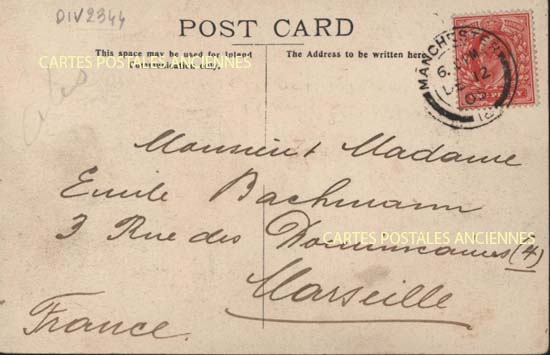 DIV2344
POST CARD
This space may be used for Inland Communication only.
The Address to be written here
MANCHESTER
6. AM
DE 12
18
CARTES POSTALES ANCIENNES
Monsieur Madame
Emile Bachmann
3 Rue des Dominicaines (4)
CARTES POSTALES ANCIENNES
Marseille
France.